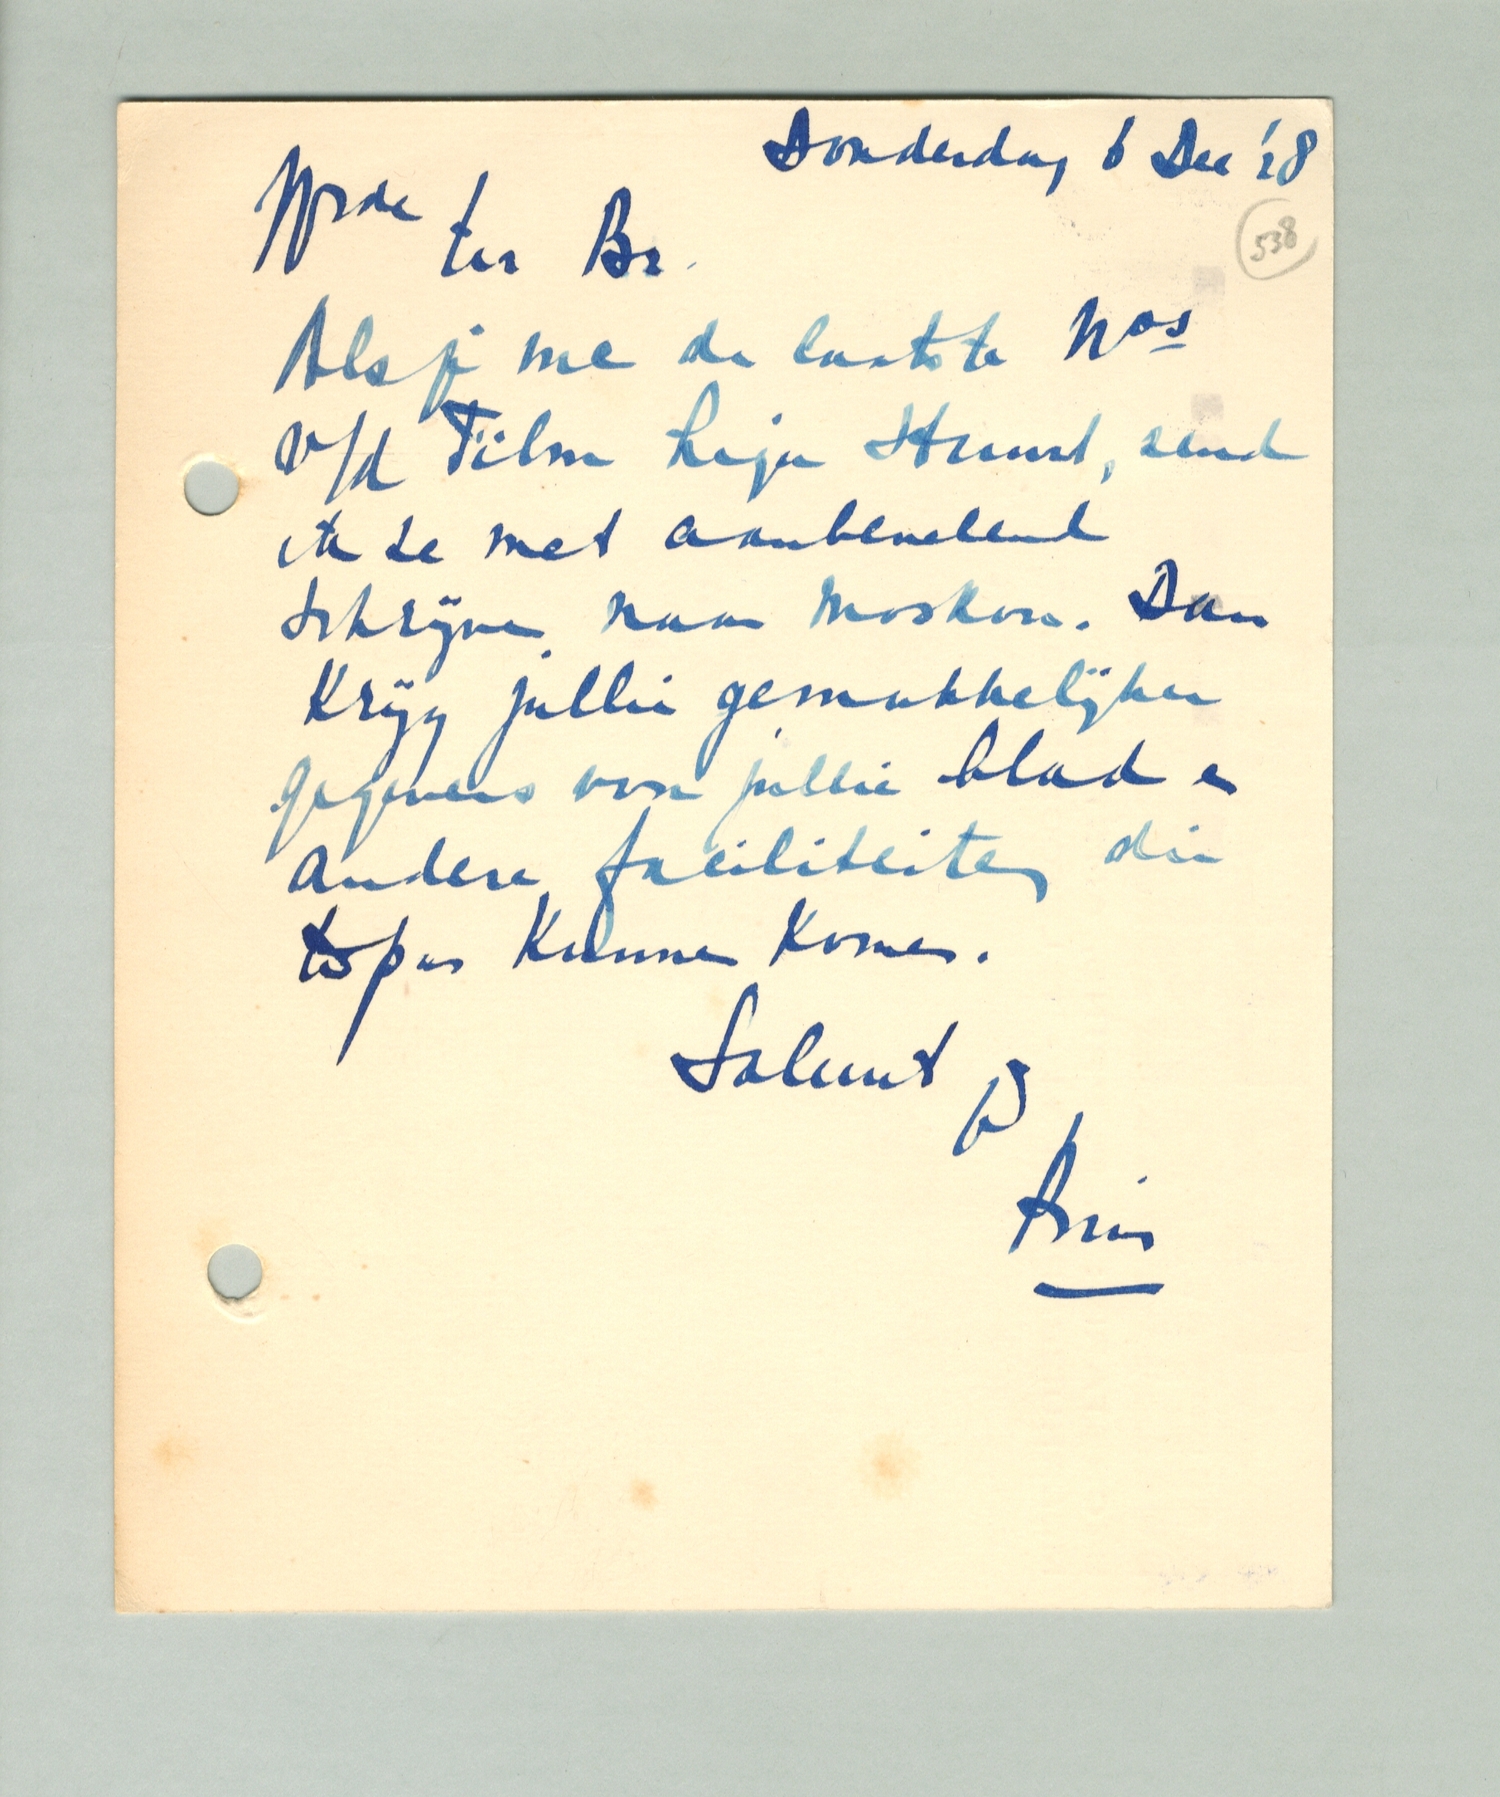 Donderdag 6 Dec '28
538
Wrde ter Br.
Als je me de laatste Nos
v/d Film Liga stuurt, zend
ik ze met aanbevelend
schrijven naar Moskou. Dan
krijg jullie gemakkelijker
gegevens voor jullie blad en
andere faciliteiten die
te pas kunnen komen.
Saluut